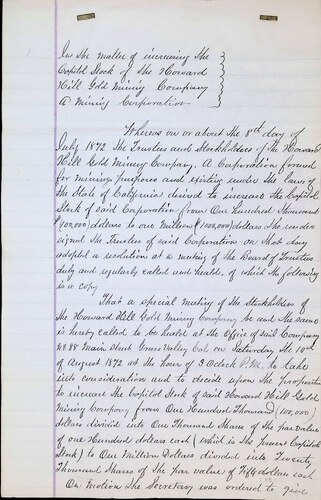 In the matter of increasing the
Capitol Stock of the Howard
Hill Gold Mining Company
A Mining Corporation
Whereas on or about the 8th day of
July 1872 The Trustees and Stockholders of the Howard
Hill Gold Mining Company. A Corporation formed
for mining purposes and existing under the laws of
the State of California desired to increase the Capitol
Stock of said Corporation from One Hundred Thousand
(100,000) dollars to one Million (1,000,000) dollars The under
signed the Trustees of said Corporation on that day
adopted a resolution at a meeting of the Board of Trustees
duly and regularly called and heald, of which the following
is a copy
That a special meeting of the Stockholders of
The Howard Hill Gold Mining Company be and the same
is hereby called to be heald at the Office of said Company
No 88 Main Street Grass Valley Cal on Saturday the 10th
of August 1872 at the hour of 3 Oclock P.M. to take
into consideration and to decide upon the proposition
to increase the Capitol Stock of said Howard Hill Gold
Mining Company from One Hundred Thousand (100,000)
dollars divided into One Thousand Shares of the par value
of one Hundred dollars each (which is the present Capitol
Stock) to One Million Dollars divided into Twenty
Thousand Shares of the par value of Fifty dollars each
On Motion The Secretary was ordered to give